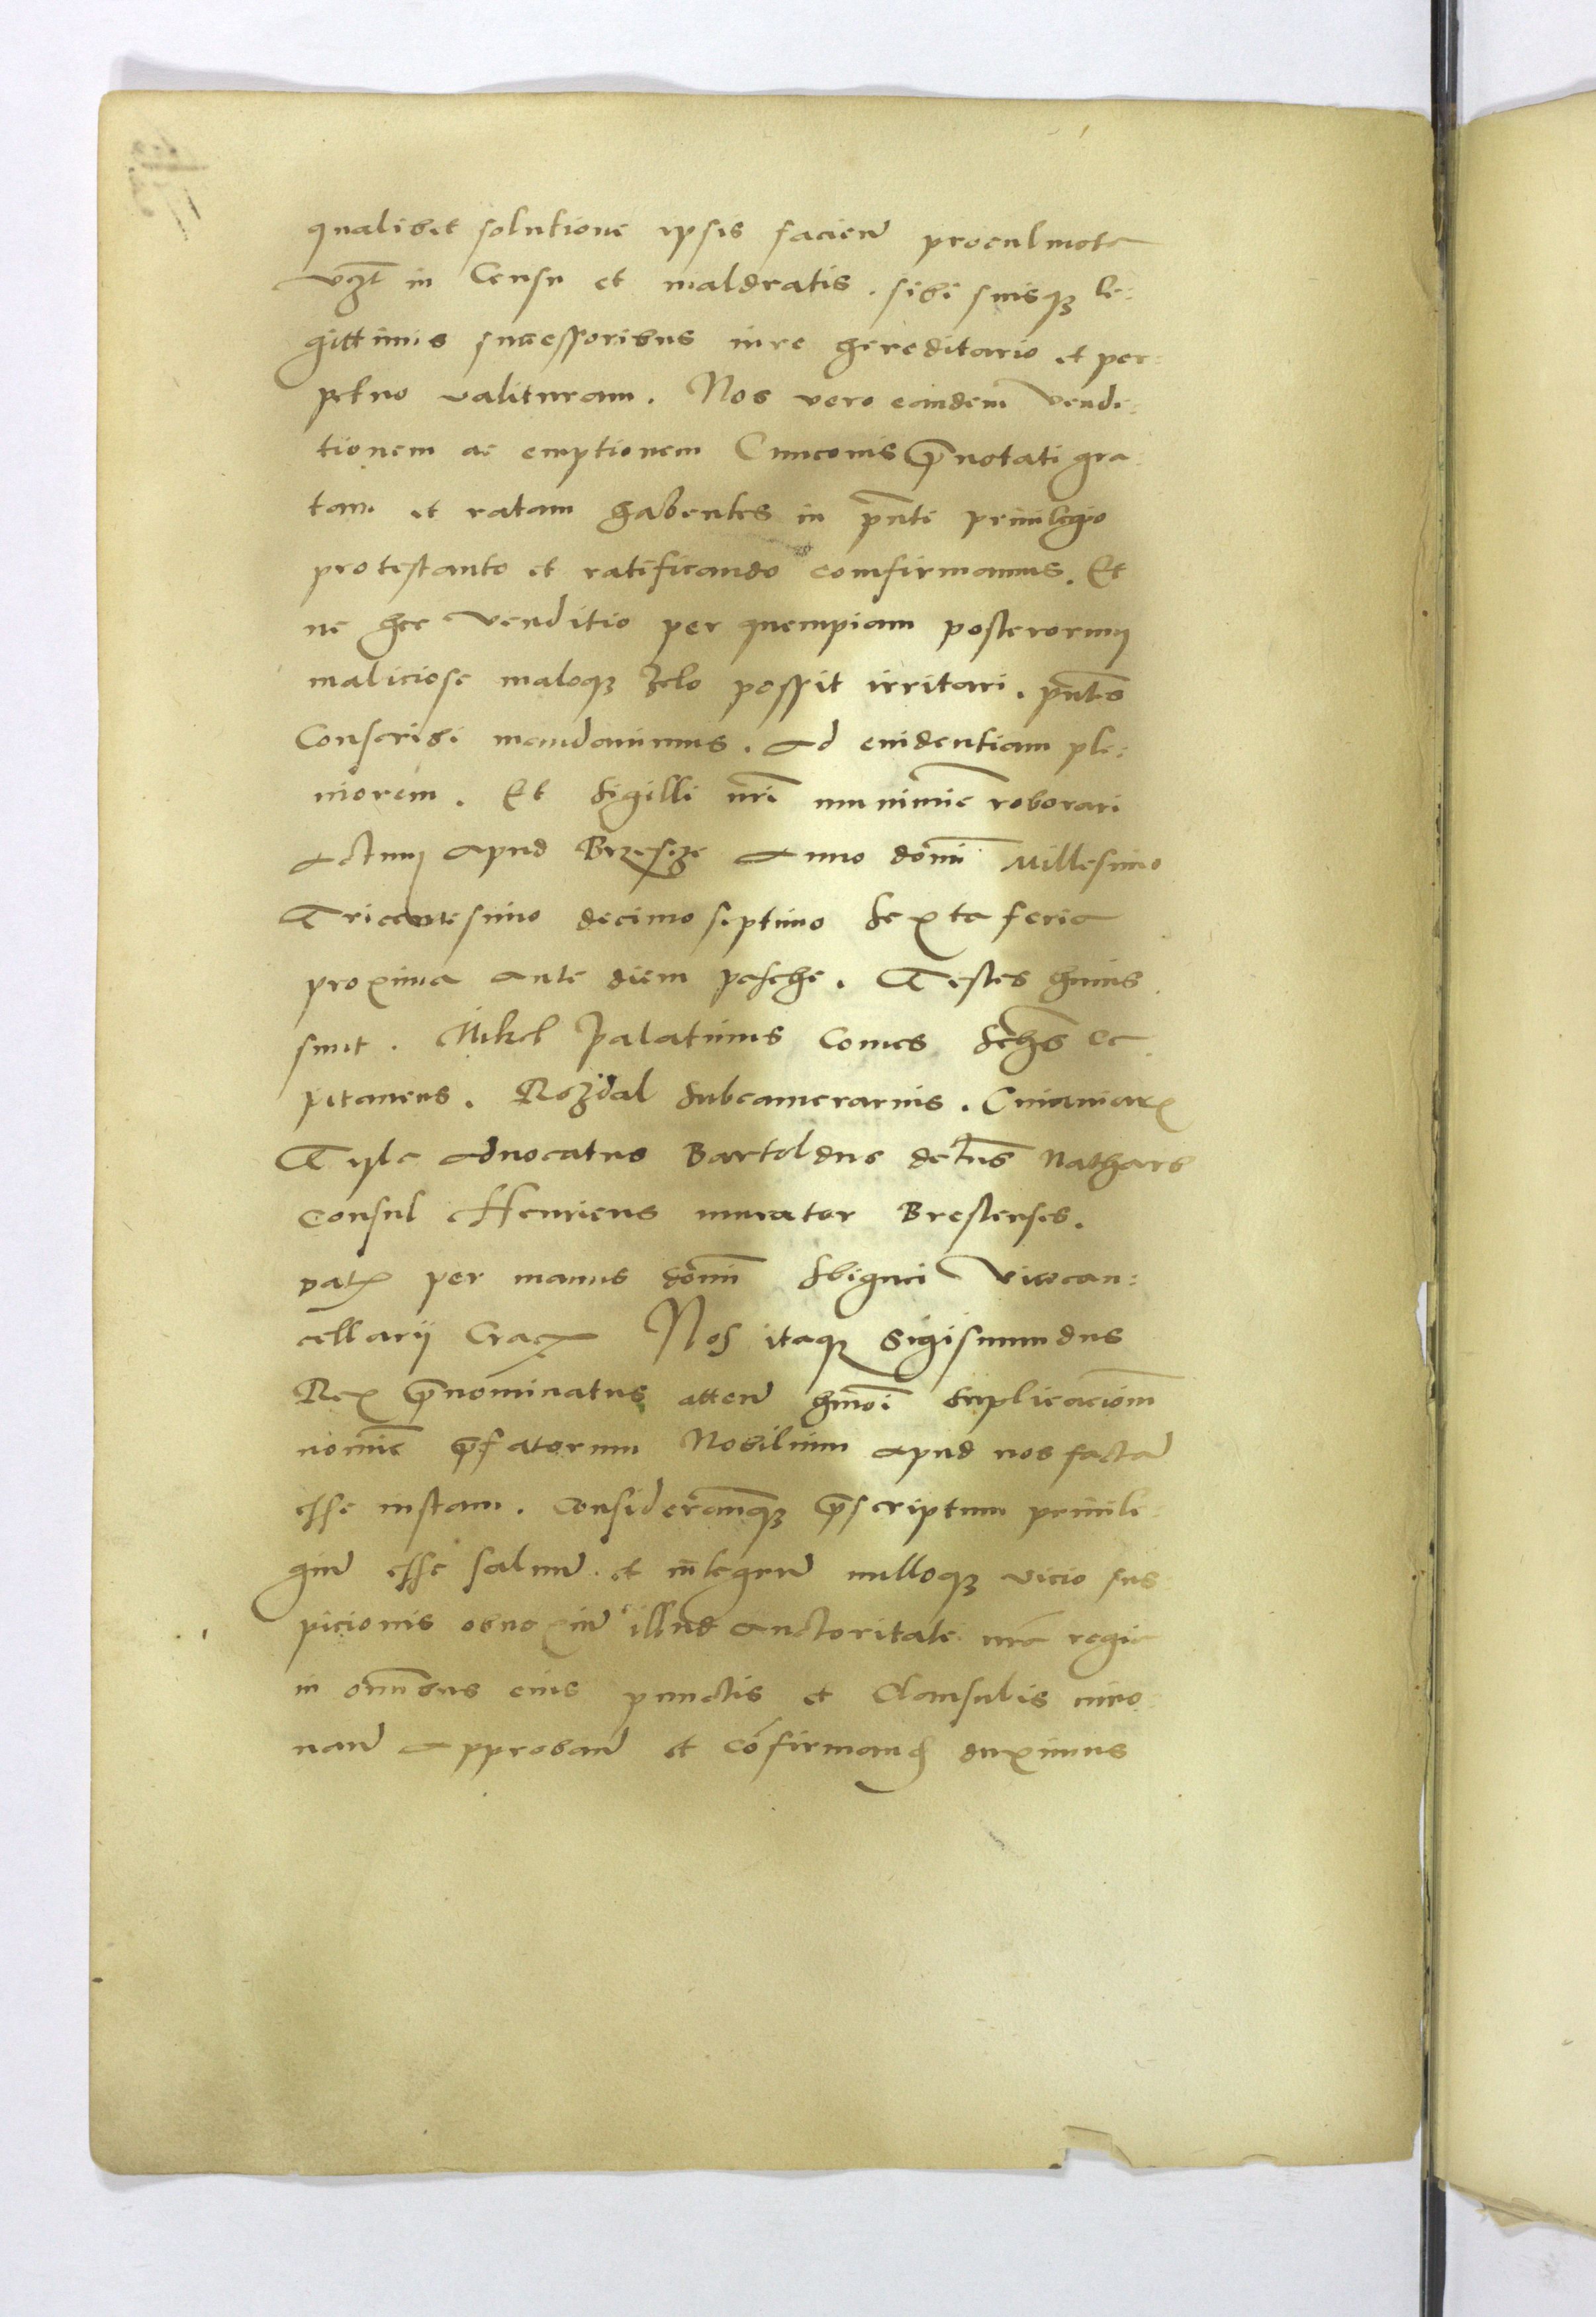 qualibet solutione ipsis facien̄ proculmota
vcz̄t in Censu et maldratis . sibi suisqꝫ le:
gittimis successoribus iure hereditario et per:
petuo valituram . Nos vero eandem vendi:
tionem ac emptionem Cunconis p̄notati gra:
tam et ratam habentes in p̄nti priuilegio
protestanto et ratificando comfirmamus . Et
ne hec venditio per quempiam posterorum
maliciose maloqꝫ zelo possit irritari . pn̄tes
Conscribi mandauimus . Ad euidentiam ple:
niorem . Et sigilli nr̄i munimīe roborari
Actum apud Brzescze Anno domī Millesimo
Tricentesimo decimo septimo sexta feria
proxima ante diem pasche . Testes huius
sunt . Nikel Palatinus Comes ca
pitaneus . Rozdal subcamerarius .
Tyle Aduocatus Bartoldus Natharb
Consul Henricus murator Brestenses .
dat per manus domī Sbignei Vicecan:
cellarij Crac Nos itaqꝫ Sigismundus
Rex p̄nominatus atten̄ hm̄oi suplicacioni
nomīe p̄fatorum Nobilium apud nos factā
esse iustam . Considerantqꝫ p̄scriptum priuile
giū esse saluū . et integrū nulloqꝫ vicio sus
picionis obnoxiū illud auctoritate nr̄a regia
in omnibus eius punctis et Clausulis inno:
uan̄ approban̄ et cōfirmand duximus